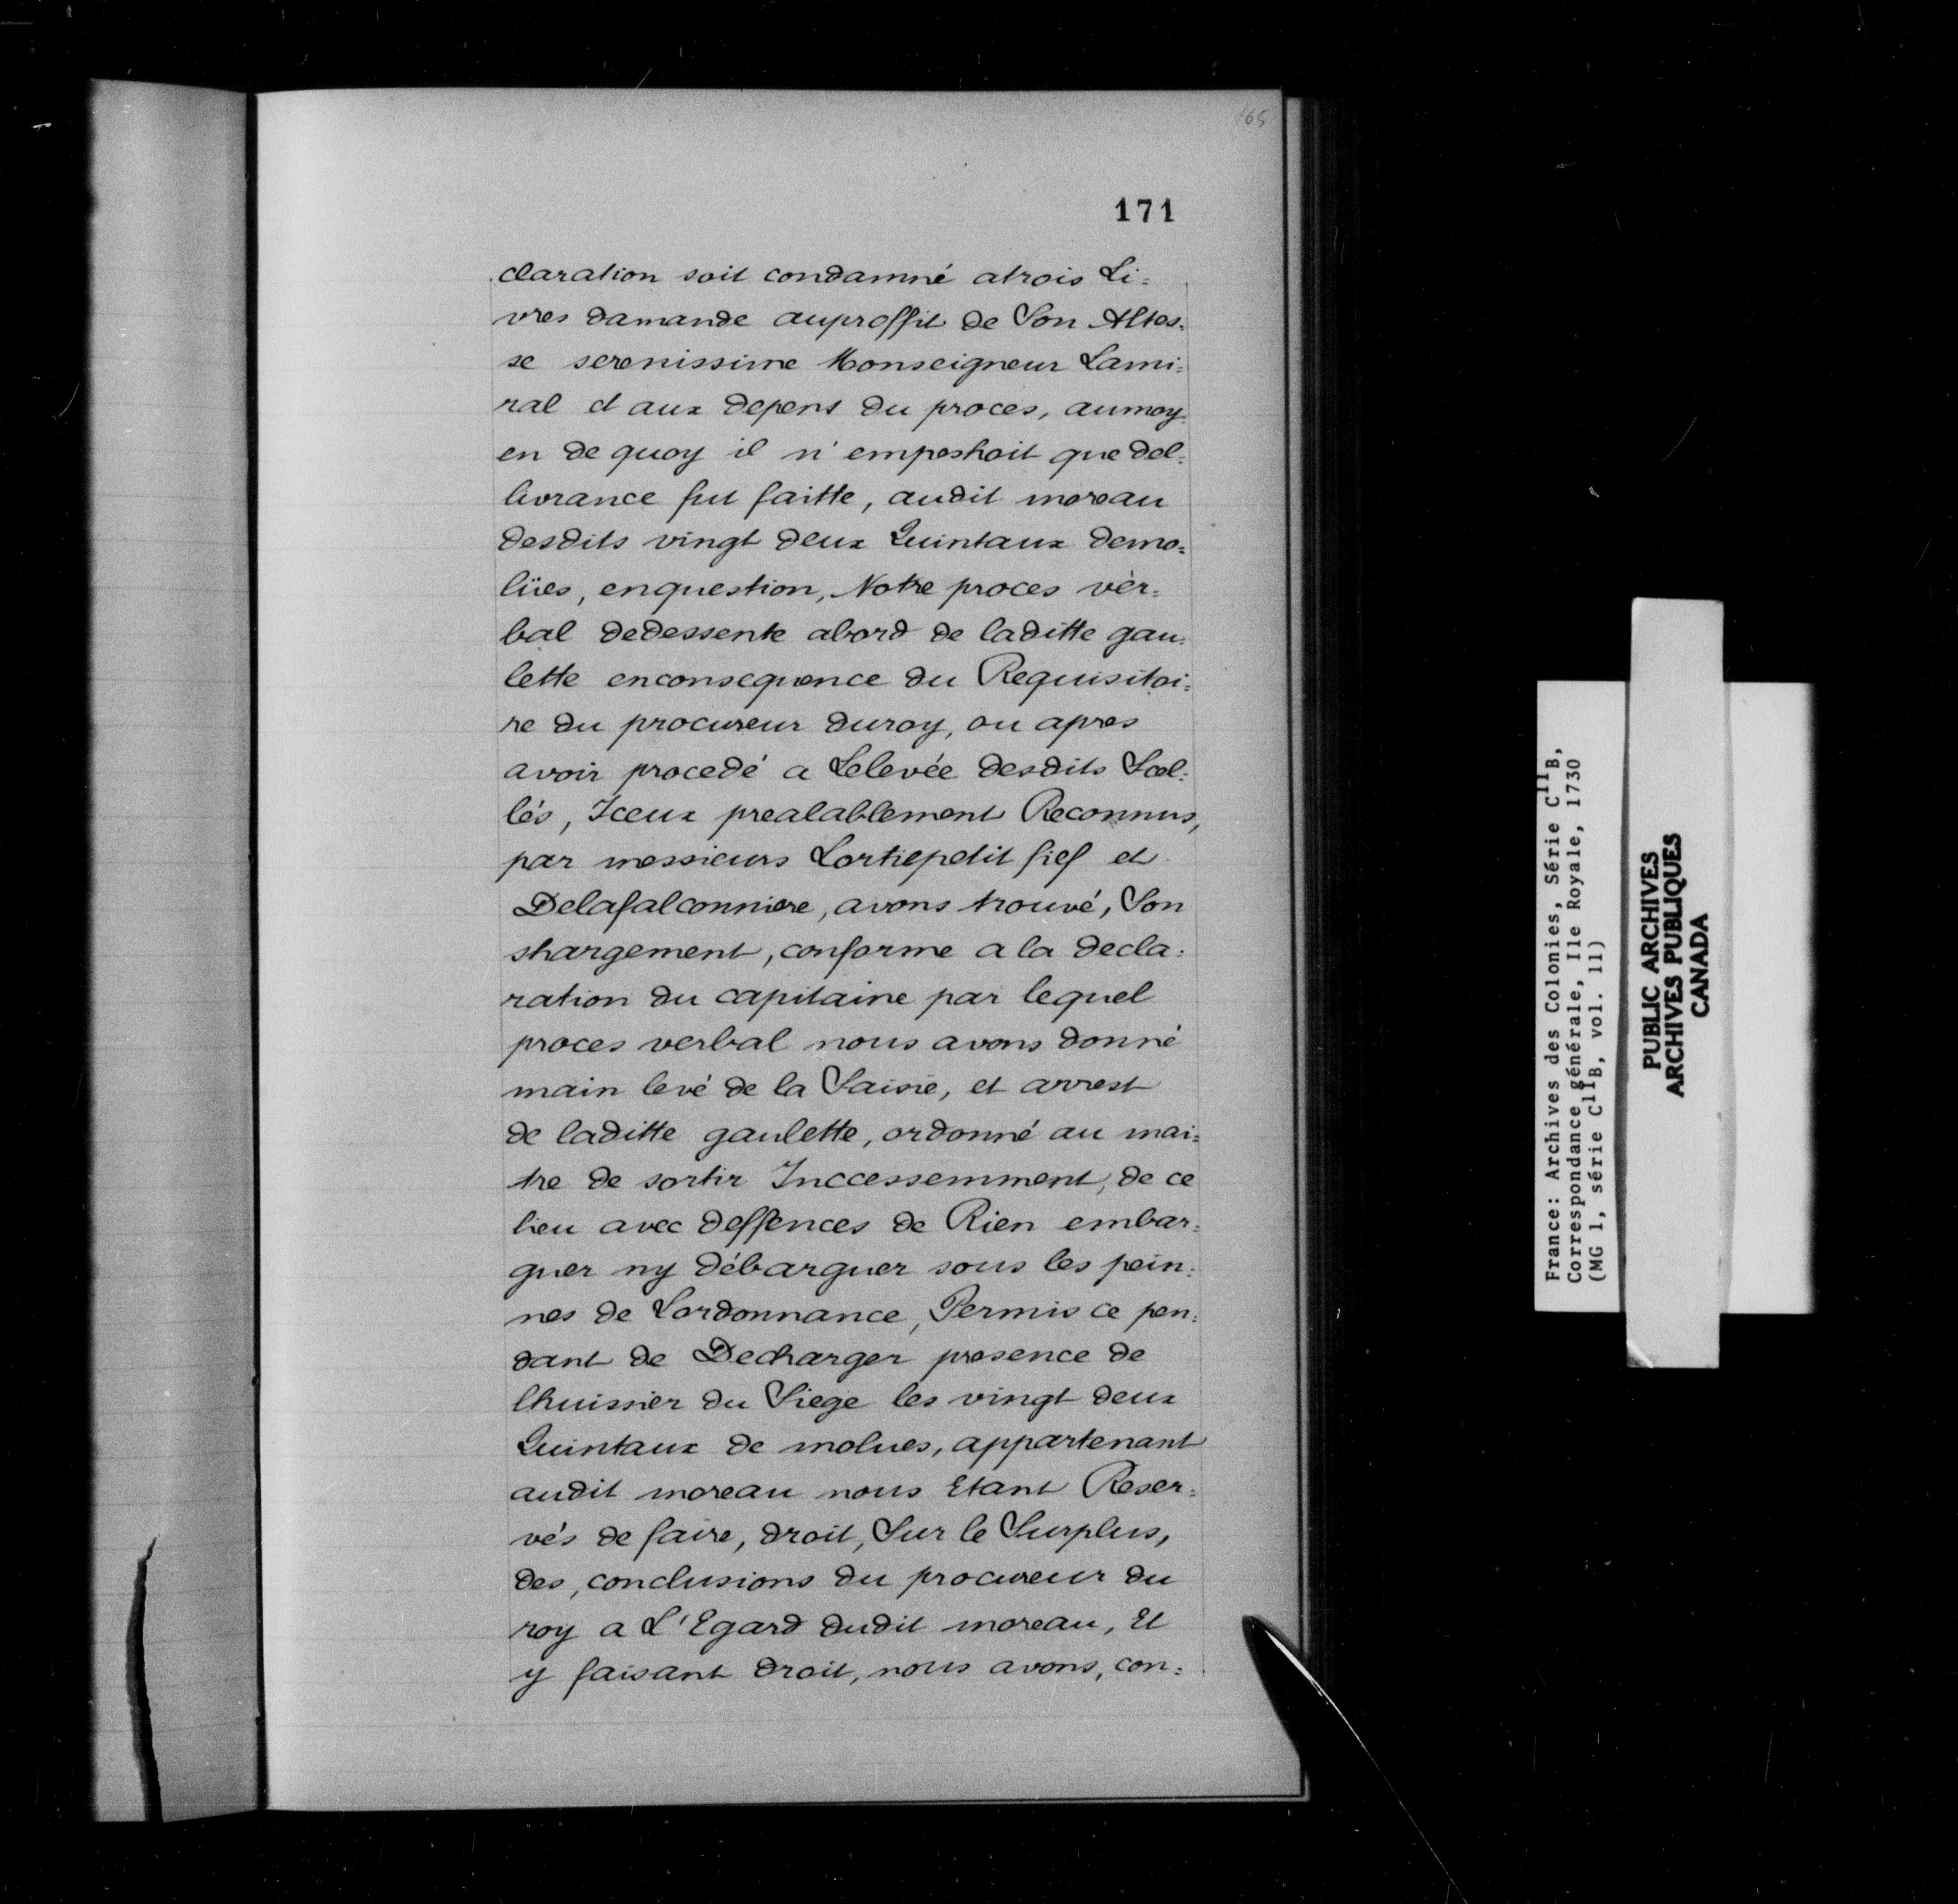 165
171
claration soit condamné atrois Li=
vres damande auproffit de Son Altes=
se serenissime Monseigneur Lami=
ral et aux depens du proces, aumoy=
en de quoy il n'empeshoit que del=
livrance fut faitte, audit moreau
desdits vingt deux Quintaux demo=
lües, enquestion, Notre proces ver=
bal dedessente abord de laditte gau=
lette enconsequence du Requisitoi=
re du procureur duroy, ou apres
avoir procedé a Lelevée desdits Scel=
lés, Iceux prealablement Reconnus,
par messieurs Lortiepetit fief et
Delafalconniere, avons trouvé, Son
shargement, conforme a la decla=
ration du capitaine par lequel
proces verbal nous avons donné
main levé de la Saisie, et arrest
de laditte gaulette, ordonné au mai=
tre de sortir Inccessemment, de ce
lieu avec deffences de Rien embar=
quer ny débarquer sous les pein=
nes de Lordonnance, Permis ce pen=
dant de Decharger presence de
lhuissier du Siege les vingt deux
Quintaux de molues, appartenant
audit moreau nous Etant Reser=
vés de faire, droit, Sur le Surplus,
des, conclusions du procureur du
roy a L'Egard dudit moreau, Et
y faisant droit, nous avons, con=
France: Archives des Colonies, Série C11B,
Correspondance générale, Ile Royale, 1730
(MG 1, série C11B, vol. 11)
PUBLIC ARCHIVES
ARCHIVES PUBLIQUES
CANADA